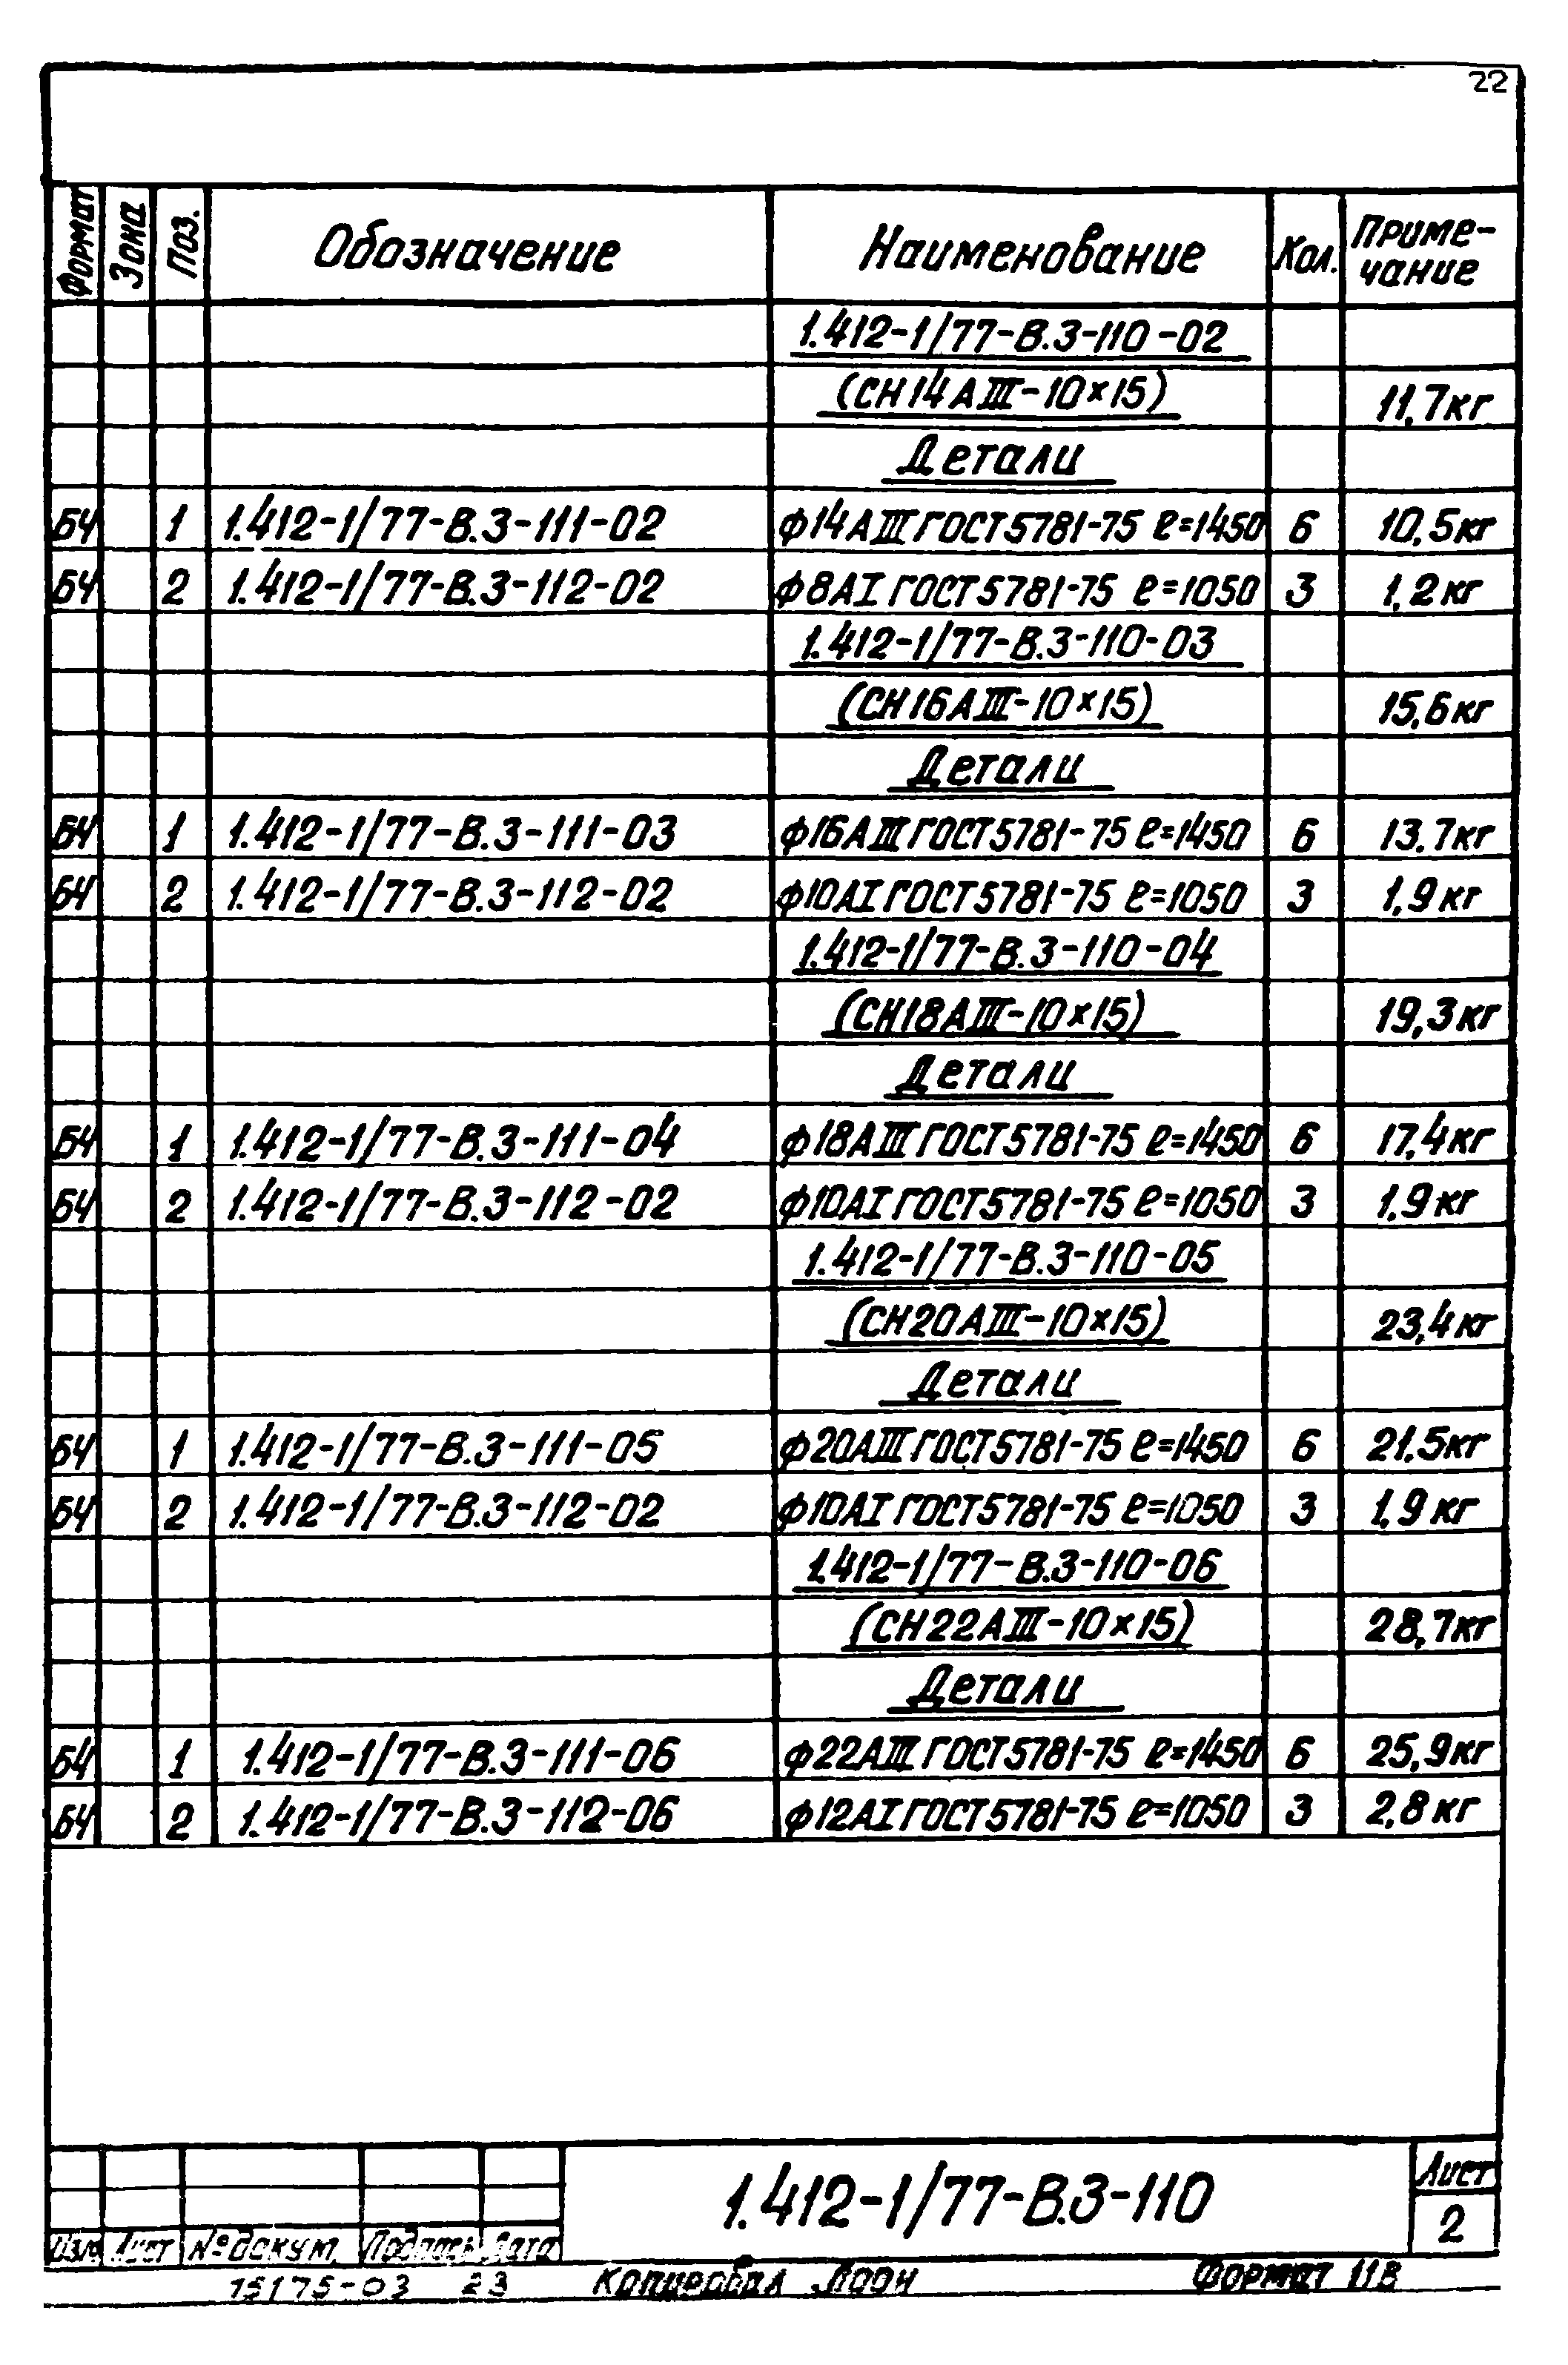 22
Формат Зона Поз. Обозначение Наименование Кол. Приме-
чание
1.412-1/77-В.3-110-02
(СН14АIII-10×15) 11,7кг
Детали
БЧ 1 1.412-1/77-В.3-111-02 ф14АIII ГОСТ5781-75 ℓ=1450 6 10,5кг
БЧ 2 1.412-1/77-В.3-112-02 ф8АI ГОСТ5781-75 ℓ=1050 3 1,2кг
1.412-1/77-В.3-110-03
(СН16АIII-10×15) 15,6кг
Детали
БЧ 1 1.412-1/77-В.3-111-03 ф16АIII ГОСТ5781-75 ℓ=1450 6 13.7кг
БЧ 2 1.412-1/77-В.3-112-02 ф10АI ГОСТ5781-75 ℓ=1050 3 1,9кг
1.412-1/77-В.3-110-04
(СН18АIII-10×15) 19,3кг
Детали
БЧ 1 1.412-1/77-В.3-111-04 ф18АIII ГОСТ5781-75 ℓ=1450 6 17,4кг
БЧ 2 1.412-1/77-В.3-112-02 ф10АI ГОСТ5781-75 ℓ=1050 3 1,9кг
1.412-1/77-В.3-110-05
(СН20АIII-10×15) 23,4кг
Детали
БЧ 1 1.412-1/77-В.3-111-05 ф20АIII ГОСТ5781-75 ℓ=1450 6 21.5кг
БЧ 2 1.412-1/77-В.3-112-02 ф10АI ГОСТ5781-75 ℓ=1050 3 1,9кг
1.412-1/77-В.3-110-06
(СН22АIII-10×15) 28,7кг
Детали
БЧ 1 1.412-1/77-В.3-111-06 ф22АIII ГОСТ5781-75 ℓ=1450 6 25,9кг
БЧ 2 1.412-1/77-В.3-112-06 ф12АI ГОСТ5781-75 ℓ=1050 3 2,8кг
1.412-1/77-В.3-110
Лист
2
Изм Лист № докум. Подпись Дата
15175-03 23 Копировал Формат 11В